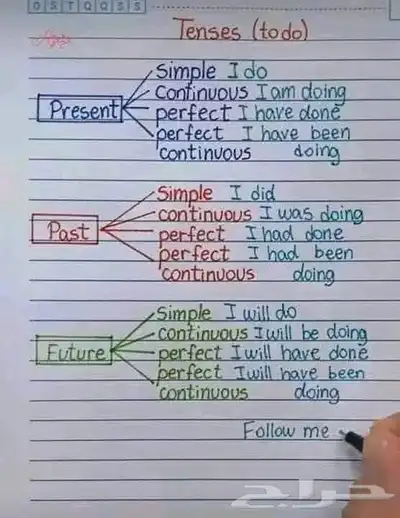 OSTQQSS
Tenses (to do)
Present
Simple I do
Continuous I am doing
perfect I have done
perfect I have been
continuous doing
Past
Simple I did
continuous I was doing
perfect I had done
perfect I had been
continuous doing
Future
Simple I will do
continuous I will be doing
perfect I will have done
perfect I will have been
continuous doing
Follow me
حراج